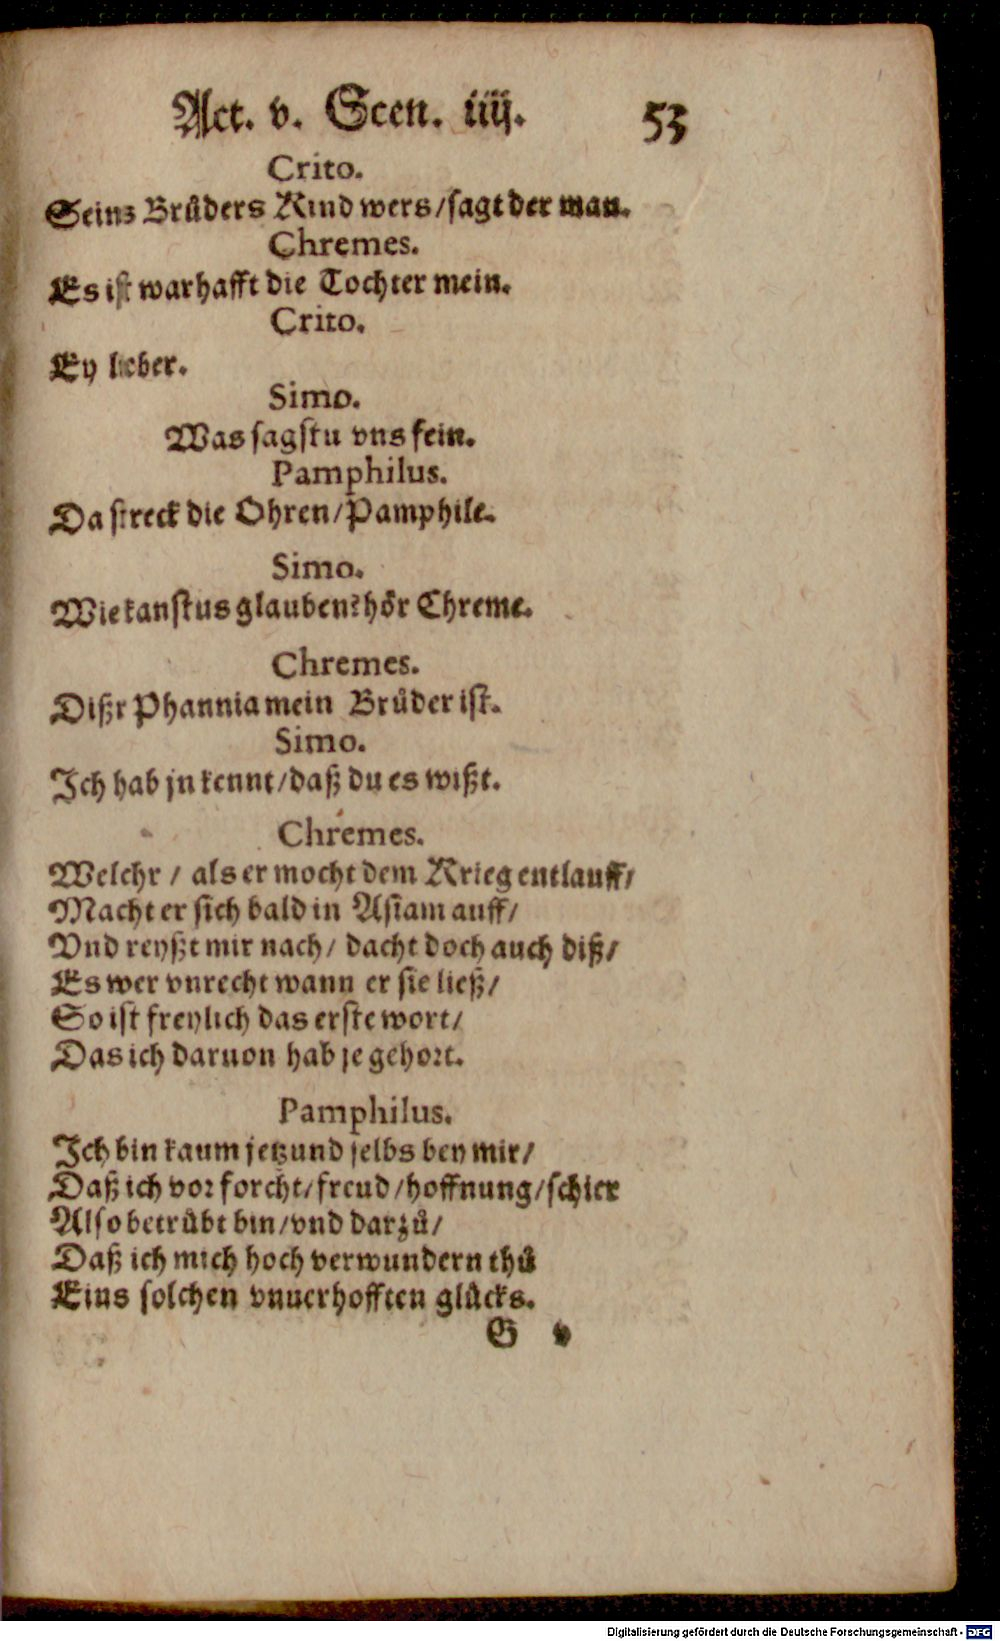 Act. v. Scen. iiij. 53
Crito.
Seins Bruͦders Kind wers/sagt der man.
Chremes.
Es ist warhafft die Tochter mein.
Crito.
Ey lieber.
Simo.
Was sagstu vns fein.
Pamphilus.
Da streck die Ohren/Pamphile.
Simo.
Wie kanstus glauben? hoͤr Chreme.
Chremes.
Dißr Phannia mein Bruͦder ist.
Simo.
Ich hab jn kennt/daß du es wißt.
Chremes.
Welchr / als er mocht dem Krieg entlauff/
Macht er sich bald in Asiam auff/
Vnd reyßt mir nach/ dacht doch auch diß/
Es wer vnrecht wann er sie ließ/
So ist freylich das erste wort/
Das ich daruon hab je gehort.
Pamphilus.
Ich bin kaum jetzund selbs bey mir/
Daß ich vor forcht/freud/hoffnung/schier
Also betruͤbt bin/vnd darzuͦ/
Daß ich mich hoch verwundern thuͦ
Eins solchen vnuerhofften gluͤcks.
G v
Digitalisierung gefördert durch die Deutsche Forschungsgemeinschaft - DFG